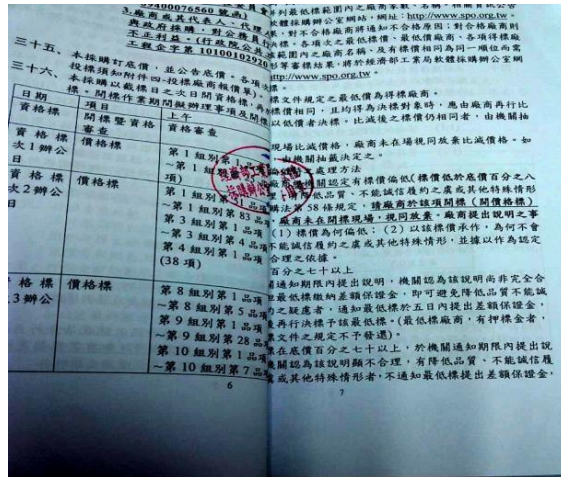 09400076560 號函)
3.廠商或其代表人、代理人
與政府採購,對公務員
不正利益:(行政院公共
工程企字第 10100102920
三十五、本採購訂底價,並公告底價。各項次
投標須知附件四-投標廠商報價單)。
三十六、本採購以截標日之次日開資格標,再
標。開標作業期間擬辦理事項及開標
日期 項目 上午
資格標 開標暨資格審查 資格審查
資格標次1辦公日 價格標 第 1 組別第 1 品項
~第 1 組別
資格標次2辦公日 價格標 第 1 組別第
~第 1 組別第 83 品
第 3 組別第 1 品項
~第 3 組別第 4 品
第 4 組別第 1 品項
(38 項)
格標3辦公 價格標 第 8 組別第 1 品項
~第 8 組別第 5 品
第 9 組別第 1 品項
~第 9 組別第 28 品
第 10 組別第 1 品項
~第 10 組別第 7 品
6
列最低標範圍內之廠商家數、名稱、相關資訊公告
軟體採購辦公室網站,網址:http://www.spo.org.tw。
果,對不合格廠商將通知不合格原因;對合格廠商則
決標。各項次之最低標價、最低價廠商、各項得標廠
範圍內之廠商名稱、及有標價相同為同一順位而需
形等審標結果,將於經濟部工業局軟體採購辦公室網
http://www.spo.org.tw。
標文件規定之最低價為得標廠商。
標價相同,且均得為決標對象時,應由廠商再行比
以低價者決標。比減後之標價仍相同者,由機關抽
現場比減價格,廠商未在場視同放棄比減價格。如
,由機關抽籤決定之。
之處理方法
機關認定有標價偏低(標價低於底價百分之八
降低品質、不能誠信履約之虞或其他特殊情形
購法第 58 條規定,請廠商於該項開標(開價格標)
,廠商未在開標現場,視同放棄。廠商提出說明之事
(1)標價為何偏低;(2)以該標價承作,為何不會
不能誠信履約之虞或其他特殊情形,並據以作為認定
合理之依據。
百分之七十以上
關通知期限內提出說明,機關認為該說明尚非完全合
但最低標繳納差額保證金,即可避免降低品質不能誠
約之疑慮者,通知最低標於五日內提出差額保證金,
後再行決標予該最低標。(最低標廠商,有押標金者,
標文件之規定不予發還)。
標在底價百分之七十以上,於機關通知期限內提出說
機關認為該說明顯不合理,有降低品質、不能誠信履
虞或其他特殊情形者,不通知最低標提出差額保證金,
7